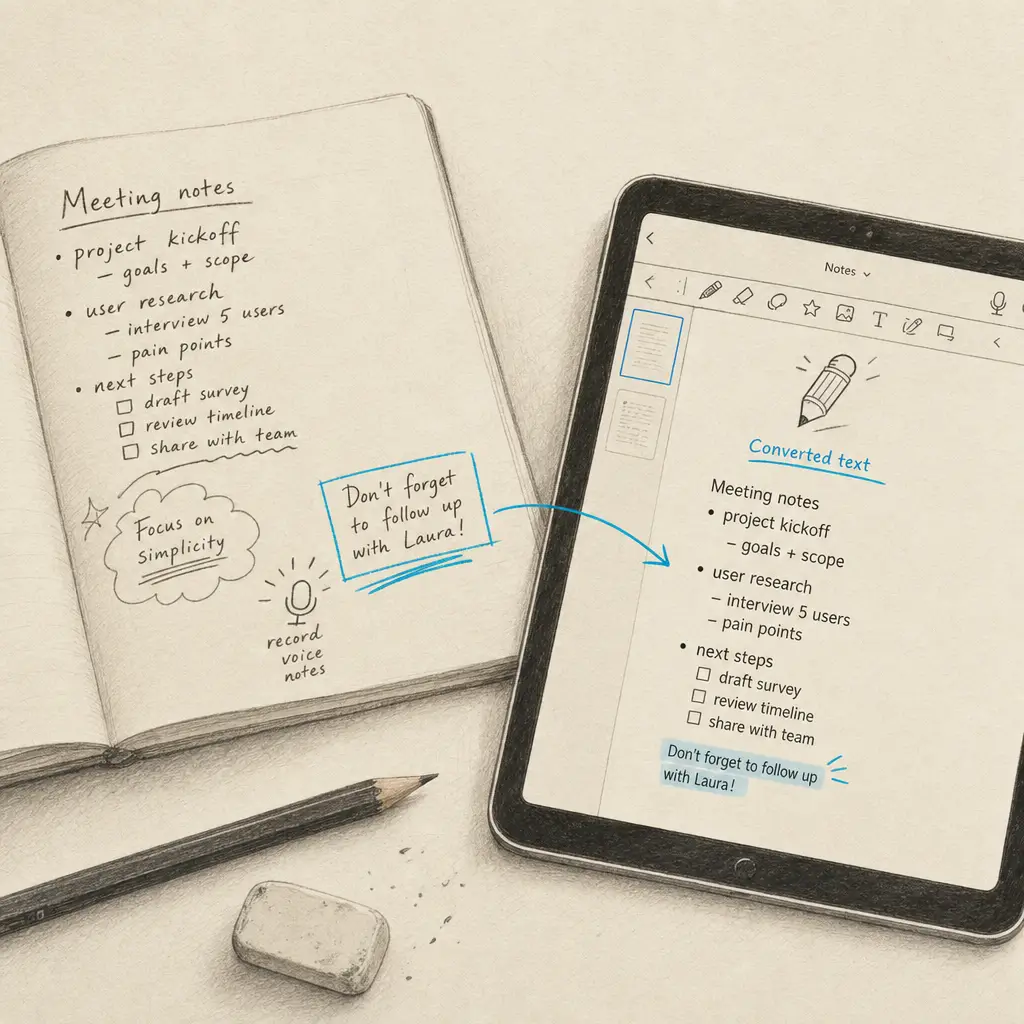 Meeting notes
• project kickoff
– goals + scope
• user research
– interview 5 users
– pain points
• next steps
☐ draft survey
☐ review timeline
☐ share with team
Focus on
simplicity
Don't forget
to follow up
with Laura!
record
voice
notes
Notes
T
Converted text
Meeting notes
• project kickoff
– goals + scope
• user research
– interview 5 users
– pain points
• next steps
☐ draft survey
☐ review timeline
☐ share with team
Don't forget to follow up
with Laura!